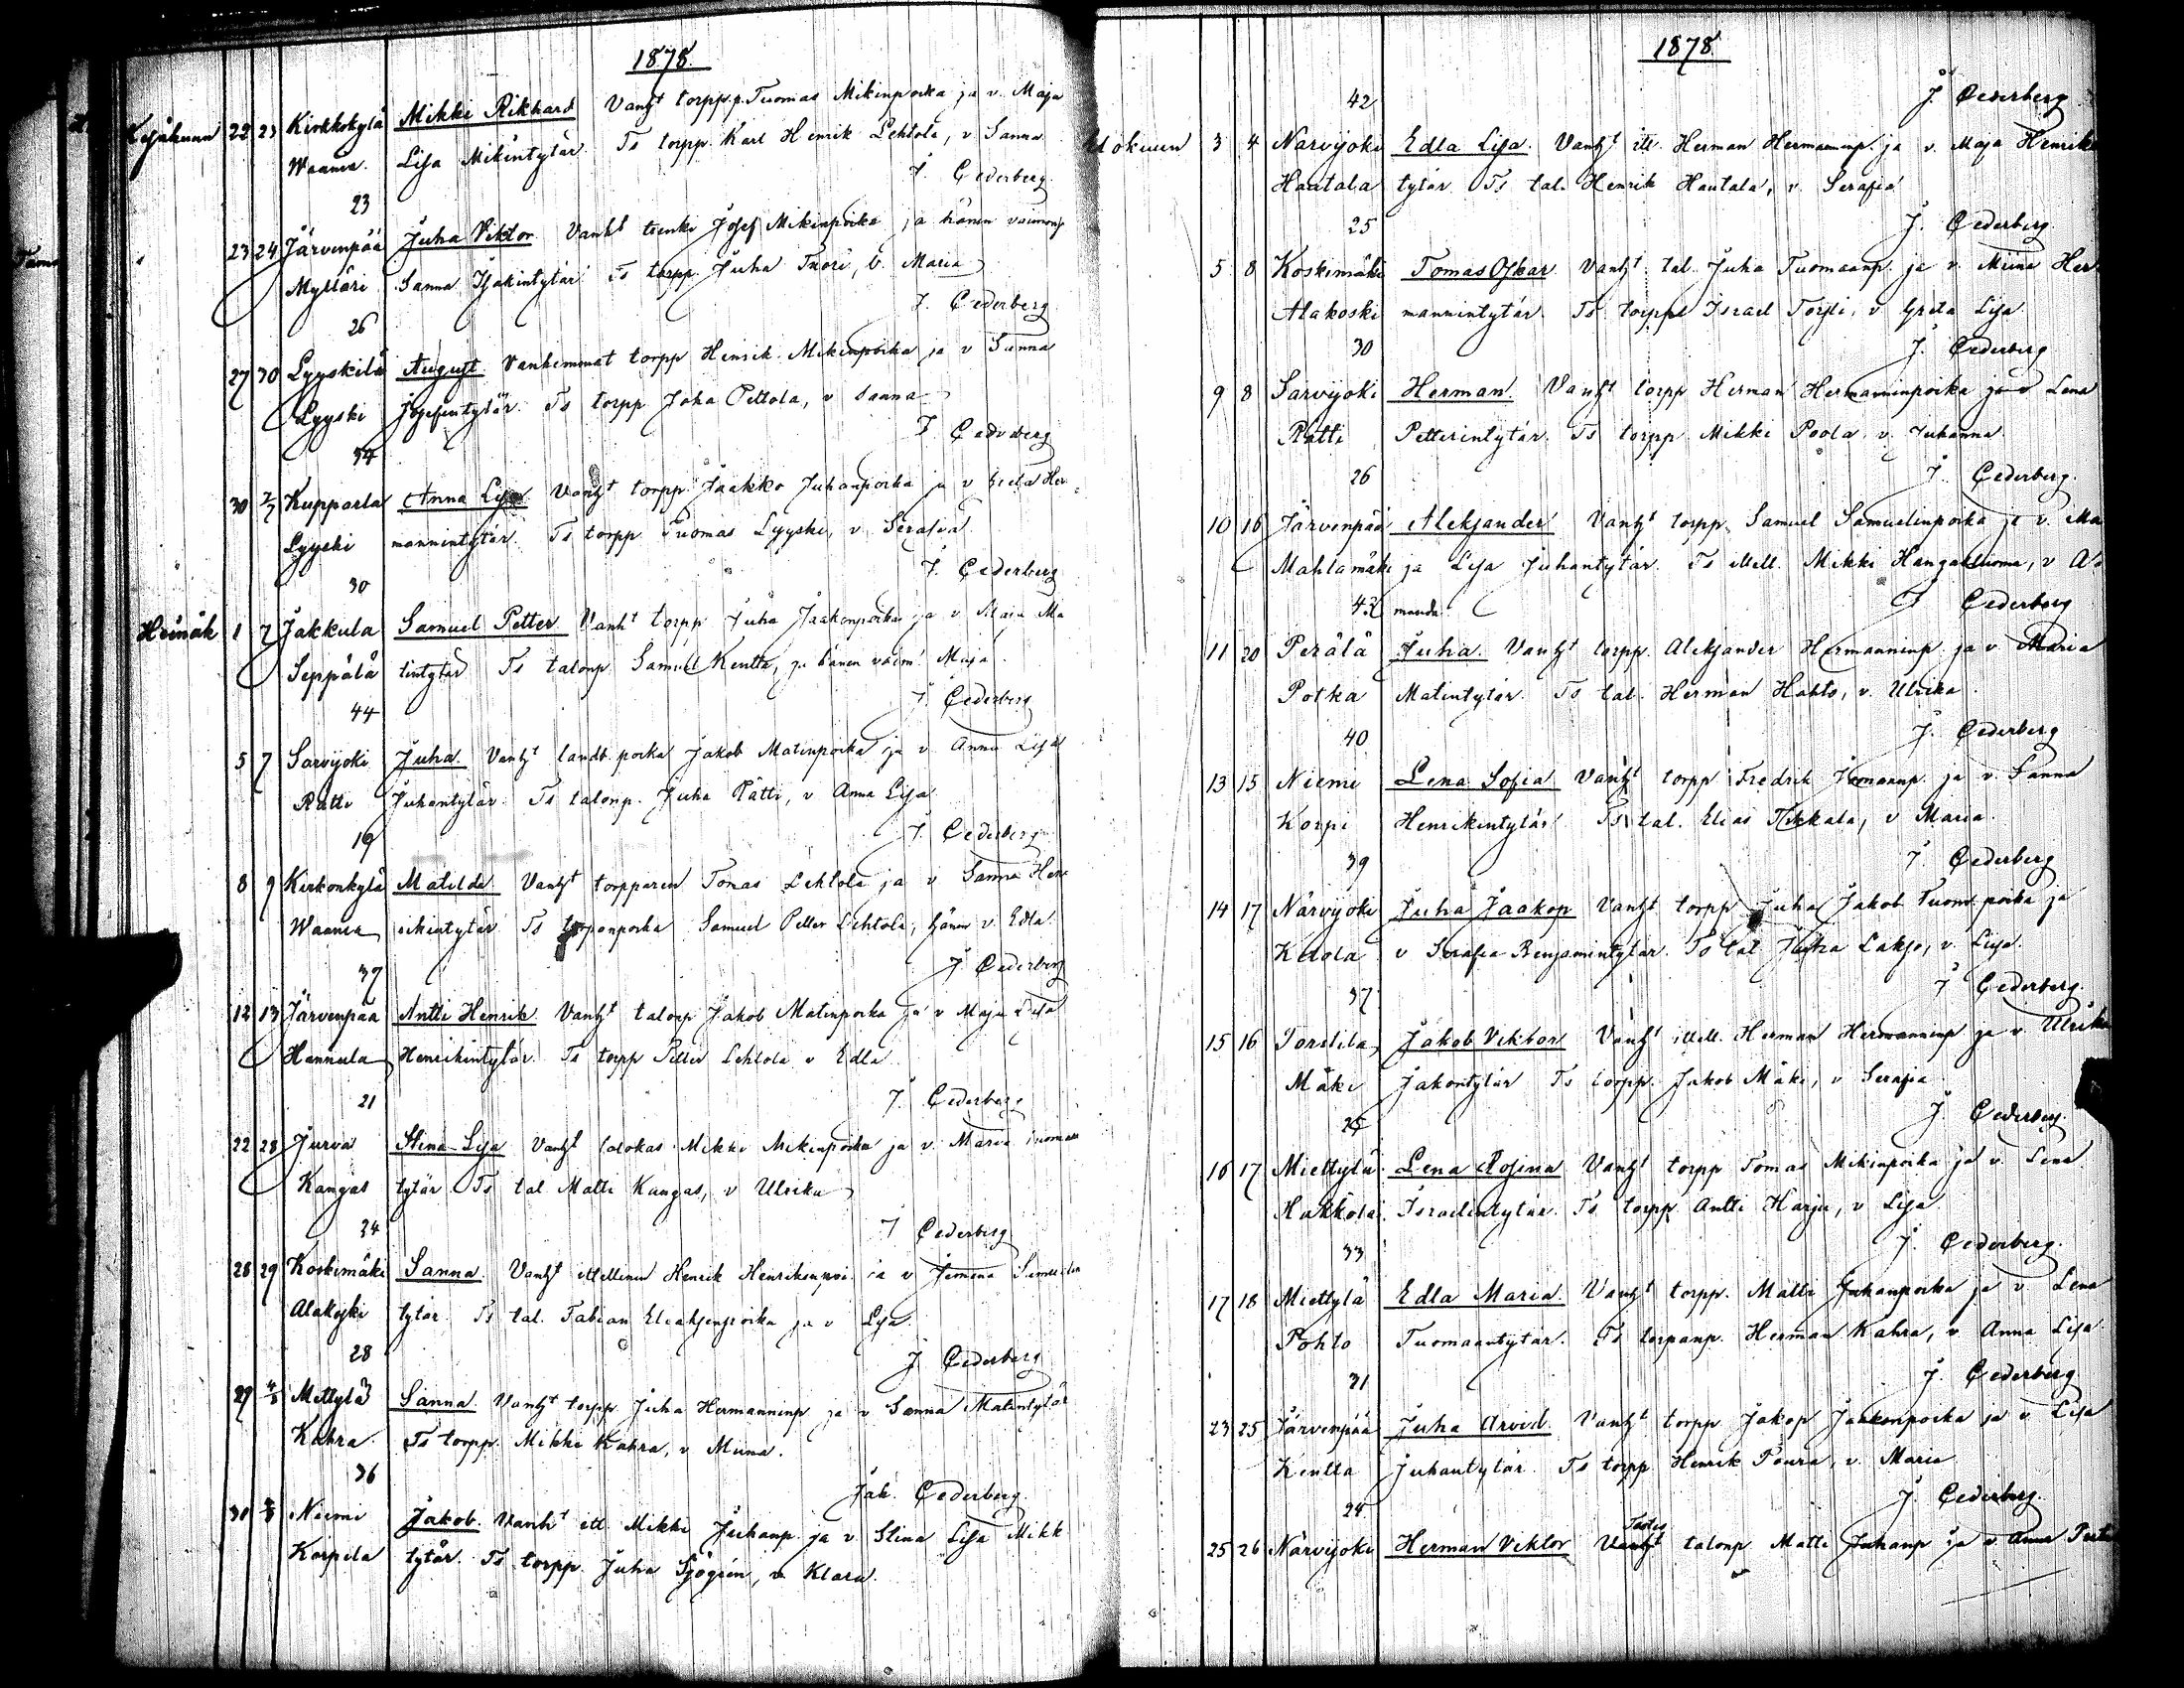 1878.
22 23 Kirkkokylä Mikki Rikhard Vanht torpp.p. Tuomas Mikinpoika ja v. Maja
Waania. Lisa Mikintytär. Ts torpp. Karl Henrik Lehtola, v Sanna
J. Cederberg.
23
23 24 Järvenpää Juha Viktor Vanht renki Josef Mikinpoika ja hänen vaimonsa
Mylläri Sanna Isakintytär Ts torpp. Juha Tuori, v. Maria
J. Cederberg
26
27 30 Lyyskilä August Vanhemmat torpp Henrik Mikinpoika ja v Sanna
Lyyski Josefintytär. Ts torpp Juha Pettola, v Sanna
J. Cederberg
34
30 2/7 Kupparla Anna Lisa Vanht torpp. Jaakko Juhanpoika ja v Her
Lyyski mannintytär. Ts torpp. Tuomas Lyyski, v. Serafia
J. Cederberg
30
Heinäk 1 7 Jakkula Samuel Petter Vanht torpp Juha Jaakonpoika ja v Maja Ma
Seppälä tintytär Ts talonp Samuel Kentta, ja hänen vaim. Maja.
J. Cederberg
44
5 7 Sarvijoki Juha. Vanht landb. poika Jakob Matinpoika ja v. Anna Lisa
Rätti Juhantytär. Ts talonp. Juha Rätti, v Anna Lisa
J. Cederberg
19
8 9 Kirkonkylä Matilda Vanht torpparin Tomas Lehtola ja v Sanna Hen
Waania rikintytär Ts torpanpoika Samuel Petter Lehtola, hänen v. Edla
J. Cederberg
37
12 13 Järvenpää Antti Henrik Vanht talonp Jakob Matinpoika ja v Maja Lisa
Hannula Henrikintytär Ts torpp Petter Lehtola v Edla
J. Cederberg
21
22 28 Jurva Stina Lisa Vanht talokas Mikki Mikinpoika ja v. Maria Tuomaan
Kangas tytär. Ts tal Matti Kangas, v Ulrika
J Cederberg
24
28 29 Koskimäki Sanna. Vanht itellinen Henrik Henrikinpoi. ja v Samuelin
Alakoski tytär. Ts tal. Fabian ja v Lisa.
28
J Cederberg
29 4/8 Mettylä Sanna. Vanht torpp Juha Hermanninp ja v Sanna Matintytär
Kahra. Ts torpp. Mikki Kahra, v Miina.
36
Jak. Cederberg.
31 Niemi Jakob. Vanht itt. Mikki Juhanp. ja v. Stina Lisa Mikk
Korpila tytär. Ts torpp. Juha Sjögrén, v Klara
1878.
42
J. Cederberg
Elokuun 3 4 Närvijoki Edla Lisa. Vanht itt. Herman Hermanninp. ja v. Maja Henrikin
Hautala tytär. Ts tal. Henrik Hautala, v. Serafia
25
J. Cederberg.
5 8 Koskimäki Tomas Oskar. Vanht. tal. Juha Tuomaanp. ja v. Miina Her
Alakoski mannintytär. Ts torpp. Israel Torsti, v Greta Lisa
30
J. Cederberg
9 8 Sarvijoki Herman. Vanht torpp Herman Hermanninpoika ja v Lena
Rätti Petterintytär. Ts torpp Mikki Poola, v. Juhanna
26
J. Cederberg.
10 16 Järvenpää Aleksander Vanht torpp Samuel Samuelinpoika ja v. Ma
Mahlamäki ja Lisa Juhantytär. Ts itell. Mikki Hangasluoma, v A
43 manda.
J Cederberg
11 20 Perälä Juha. Vanht torpp. Aleksander Hermanninp. ja v. Maria
Potka Matintytär. Ts tal. Herman Hahto, v. Ulrika.
40
J. Cederberg
13 15 Niemi Lena Sofia Vanht torpp Fredrik ja v. Sanna
Korpi Henrikintytär Ts tal. Elias Tikkala, v Maria.
39
J Cederberg
14 17 Närvijoki Juha Jaakop Vanht torpp Juha Jakob Tuom. poika ja
Ketola v Serafia Benjamintytär. Ts tal Jukka Lakso, v. Lisa.
37
J Cederberg.
15 16 Torstila Jakob Viktor Vanht itell. Herman Hermanninp ja v Ulrika
Mäki Jakontytär Ts torpp. Jakob Mäki, v Serafia
J. Cederberg.
16 17 Miettylä Lena Rosina Vanht torpp Tomas Mikinpoika ja v. Lena
Hakkola Israelintytär. Ts torpp. Antti Harju, v Lisa.
33
J. Cederberg.
17 18 Miettylä Edla Maria. Vanht torpp. Matti Juhanpoika ja v Lena
Pohto Tuomaantytär. Ts torpanp. Herman Kahra, v. Anna Lisa
31
J. Cederberg
23 25 Järvenpää Juha Arvid. Vanht torpp Jakop Jaakonpoika ja v. Lisa
Kentta Juhantytär. Ts torpp Henrik v. Maria
24
J. Cederberg.
25 26 Närvijoki Herman Viktor Vanht talonp Matti Juhanp ja v Anna